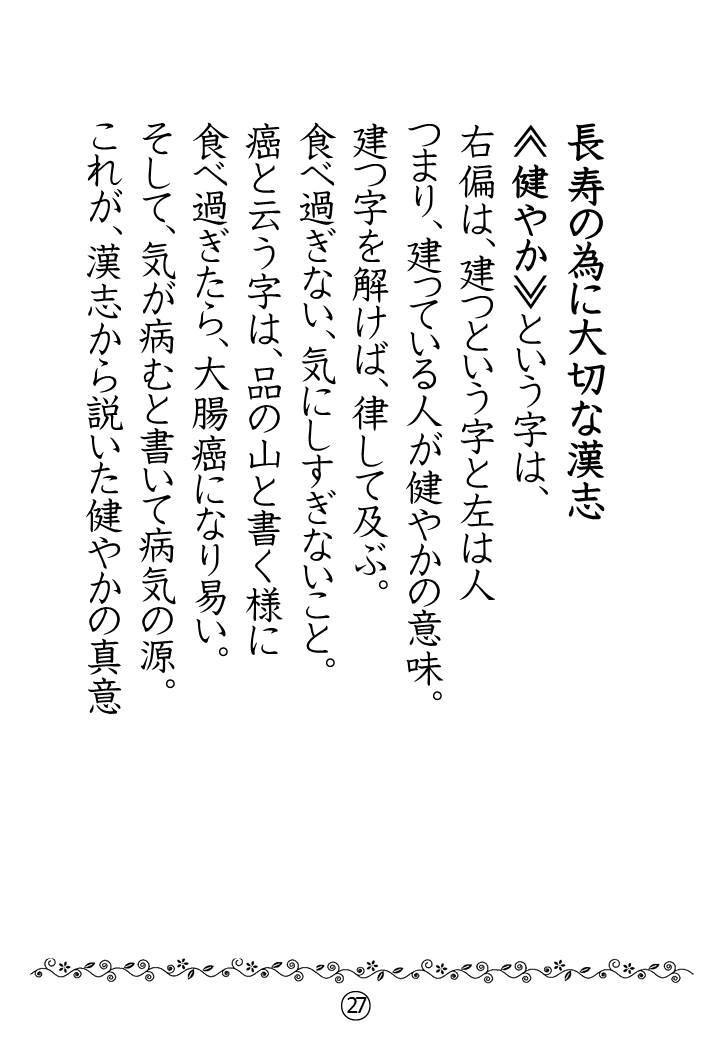 長寿の為に大切な漢志
≪健やか≫という字は、
右偏は、建つという字と左は人
つまり、建っている人が健やかの意味。
建つ字を解けば、律して及ぶ。
食べ過ぎない、気にしすぎないこと。
癌と云う字は、品の山と書く様に
食べ過ぎたら、大腸癌になり易い。
そして、気が病むと書いて病気の源。
これが、漢志から説いた健やかの真意
27